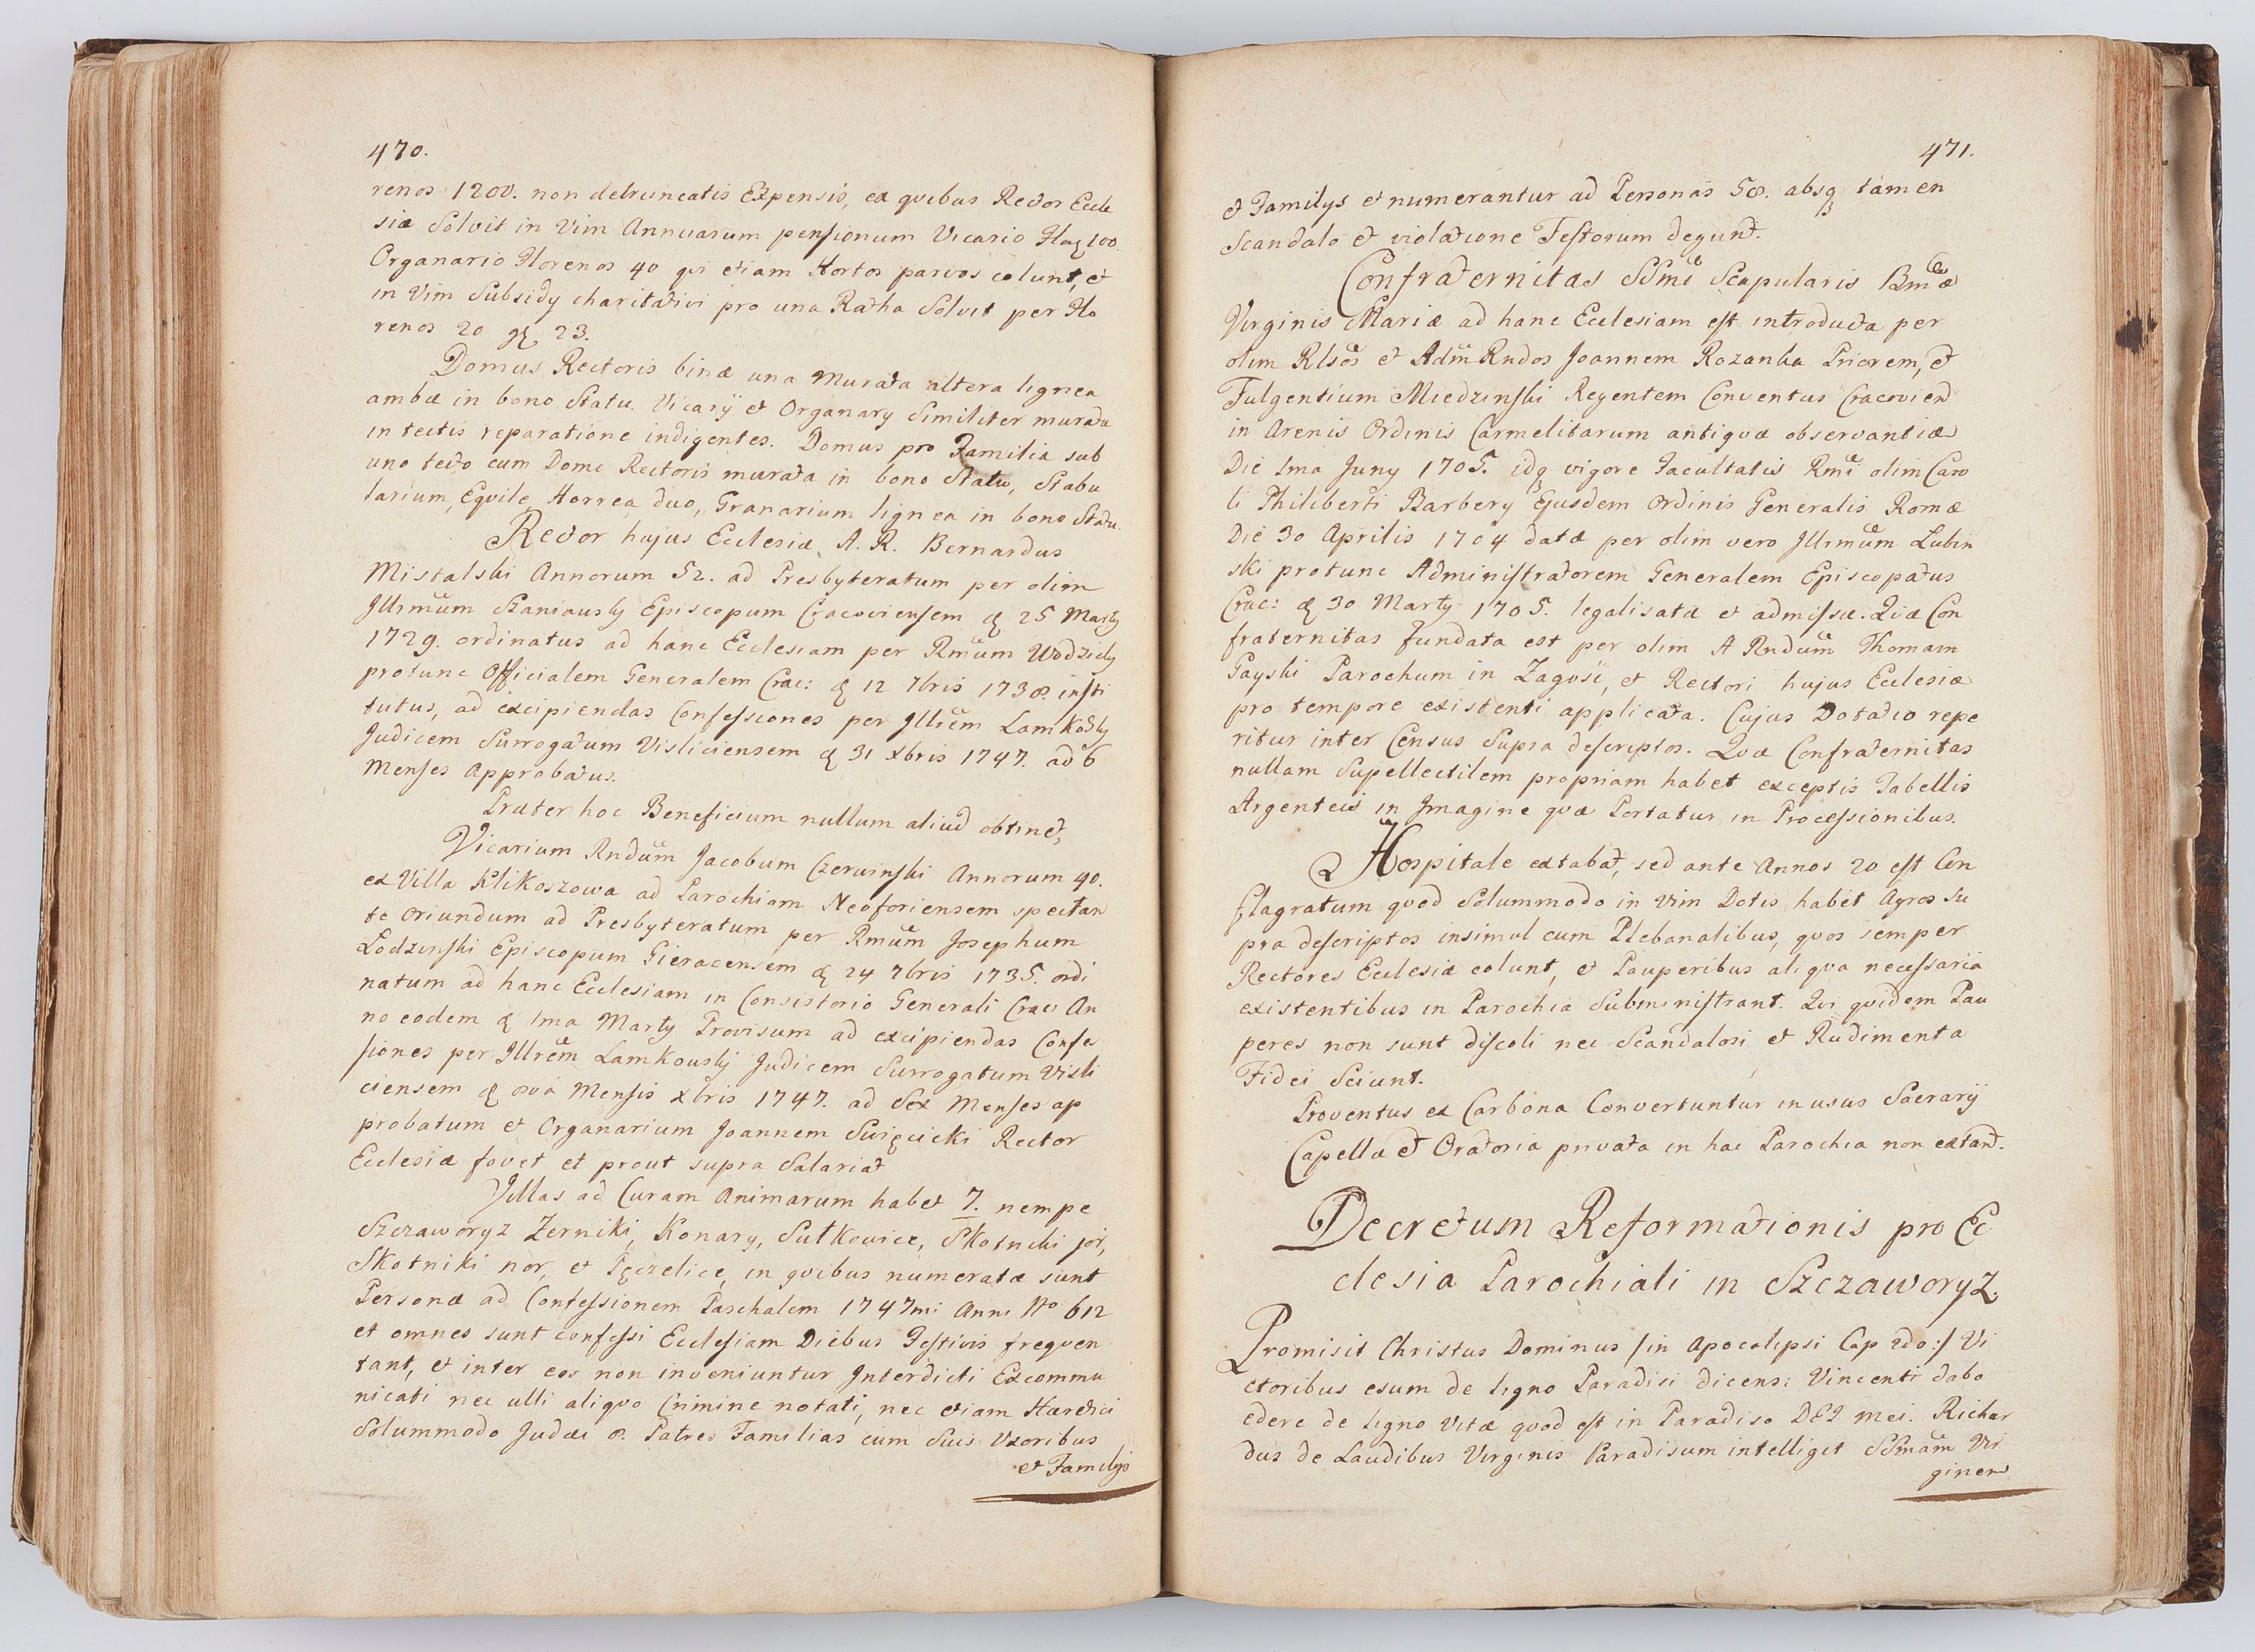 470.
renos 1200. non detruncatis Expensis, ex quibus Rector Eccle
siæ Solvit in Vim Annuarum pensionum Vicario 100
Organario Florenos 40 qui etiam Hortos parvos colunt, et
in Vim Subsidy charitativi pro una Ratha Solvit per Flo
renos 20 gr 23.
Domus Rectoris binæ una Murata altera lignea
ambæ in bono Statu. Vicarij et Organary Similiter murata
in tectis reparatione indigentes. Domus pro Familia sub
uno tecto cum Domo Rectoris murata in bono Statu, Stabu
larium, Equile, Horrea duo, Granarium lignea in bono Statu.
Rector hujus Ecclesiæ A. R. Bernardus
Mistalski Annorum 52. ad Presbyteratum per olim
Illrmum Szaniausky Episcopum Cracoviensem d 25 Marty
1729. ordinatus ad hanc Ecclesiam per Rmum Wodzicky
protunc Officialem Generalem Crac: d 12 7bris 1738. insti
tutus, ad excipiendas Confessiones per Illrem Lamkosky
Judicem Surrogatum Visliciensem d 31 xbris 1747. ad 6
Menses Approbatus.
Præter hoc Beneficium nullum aliud obtinet,
Vicarium Rndum Jacobum Czerwinski Annorum 40.
ex Villa Klikoszowa ad Parochiam Neoforiensem spectan
te Oriundum ad Presbyteratum per Rmum Josephum
Lodzinski Episcopum Gieracensem d 24 7bris 1735. ordi
natum ad hanc Ecclesiam in Consistorio Generali Crac An
no eodem d 1ma Marty Provisum ad excipiendas Confes
siones per Illrem Lamkousky Judicem Surrogatum Visli
ciensem d 8va Mensis xbris 1747. ad Sex Menses ap
probatum et Organarium Joannem Swięcicki Rector
Ecclesiæ fovet et prout supra Salariat
Villas ad Curam Animarum habet 7. nempe
Szczaworyz Zerniki, Konary, Sutkowice, Skotniki jor,
Skotniki nor, et Pęczelice, in quibus numeratæ sunt
Personæ ad Confessionem Paschalem 1747mi Anni No 612
et omnes sunt confessi Ecclesiam Diebus Festivis frequen
tant, et inter eos non inveniuntur Interdicti Excommu
nicati nec ulli aliquo Crimine notati, nec etiam Hæretici
Solummodo Judæi 8. Patres Familias cum Suis Uxoribus
et Familijs
471.
et Familys et numerantur ad Personas 58. absq tamen
Scandalo et violatione Festorum degunt.
Confraternitas SSmi Scapularis Bmæ
Virginis Mariæ ad hanc Ecclesiam est introducta per
olim Rlsos et Adm Rndos Joannem Rozanka Priorem, et
Fulgentium Miedzinski Regentem Conventus Cracovien
in Arenis Ordinis Carmelitarum antiquæ observantiæ
Die 1ma Juny 1705. idq vigore Facultatis Rmi olim Caro
li Philiberti Barbery Ejusdem Ordinis Generalis Romæ
Die 30 Aprilis 1704 datæ per olim vero Illrmum Lubin
ski protunc Administratorem Generalem Episcopatus
Crac: d 30 Marty 1705. legalisatæ et admissæ. Quæ Con
fraternitas fundata est per olim A Rndum Thomam
Gayski Parochum in Zagość, et Rectori hujus Ecclesiæ
pro tempore existenti applicata. Cujus Dotatio repe
ritur inter Census Supra descriptos. Quæ Confraternitas
nullam Supellectilem propriam habet exceptis Tabellis
Argenteis in Imagine quæ Portatur in Processionibus.
Hospitale extabat, sed ante Annos 20 est Con
flagratum quod Solummodo in Vim Dotis habet Agros Su
pra descriptos insimul cum Plebanalibus, quos semper
Rectores Ecclesiæ colunt, et Pauperibus aliqua necessaria
existentibus in Parochia Subministrant. Qui quidem Pau
peres non sunt discoli nec Scandalosi et Rudimenta
Fidei Sciunt.
Proventus ex Carbona Convertuntur in usus Sacrarij
Capellæ et Oratoria privata in hac Parochia non extant.
Decretum Reformationis pro Ec
clesia Parochiali in Szczaworyz.
Promisit Christus Dominus /in Apocalipsi Cap 2do:/ Vi
ctoribus esum de ligno Paradisi dicens: Vincenti dabo
edere de ligno Vitæ quod est in Paradiso DEI mei. Richar
dus de Laudibus Virginis Paradisum intelligit SSmam Vir
ginem